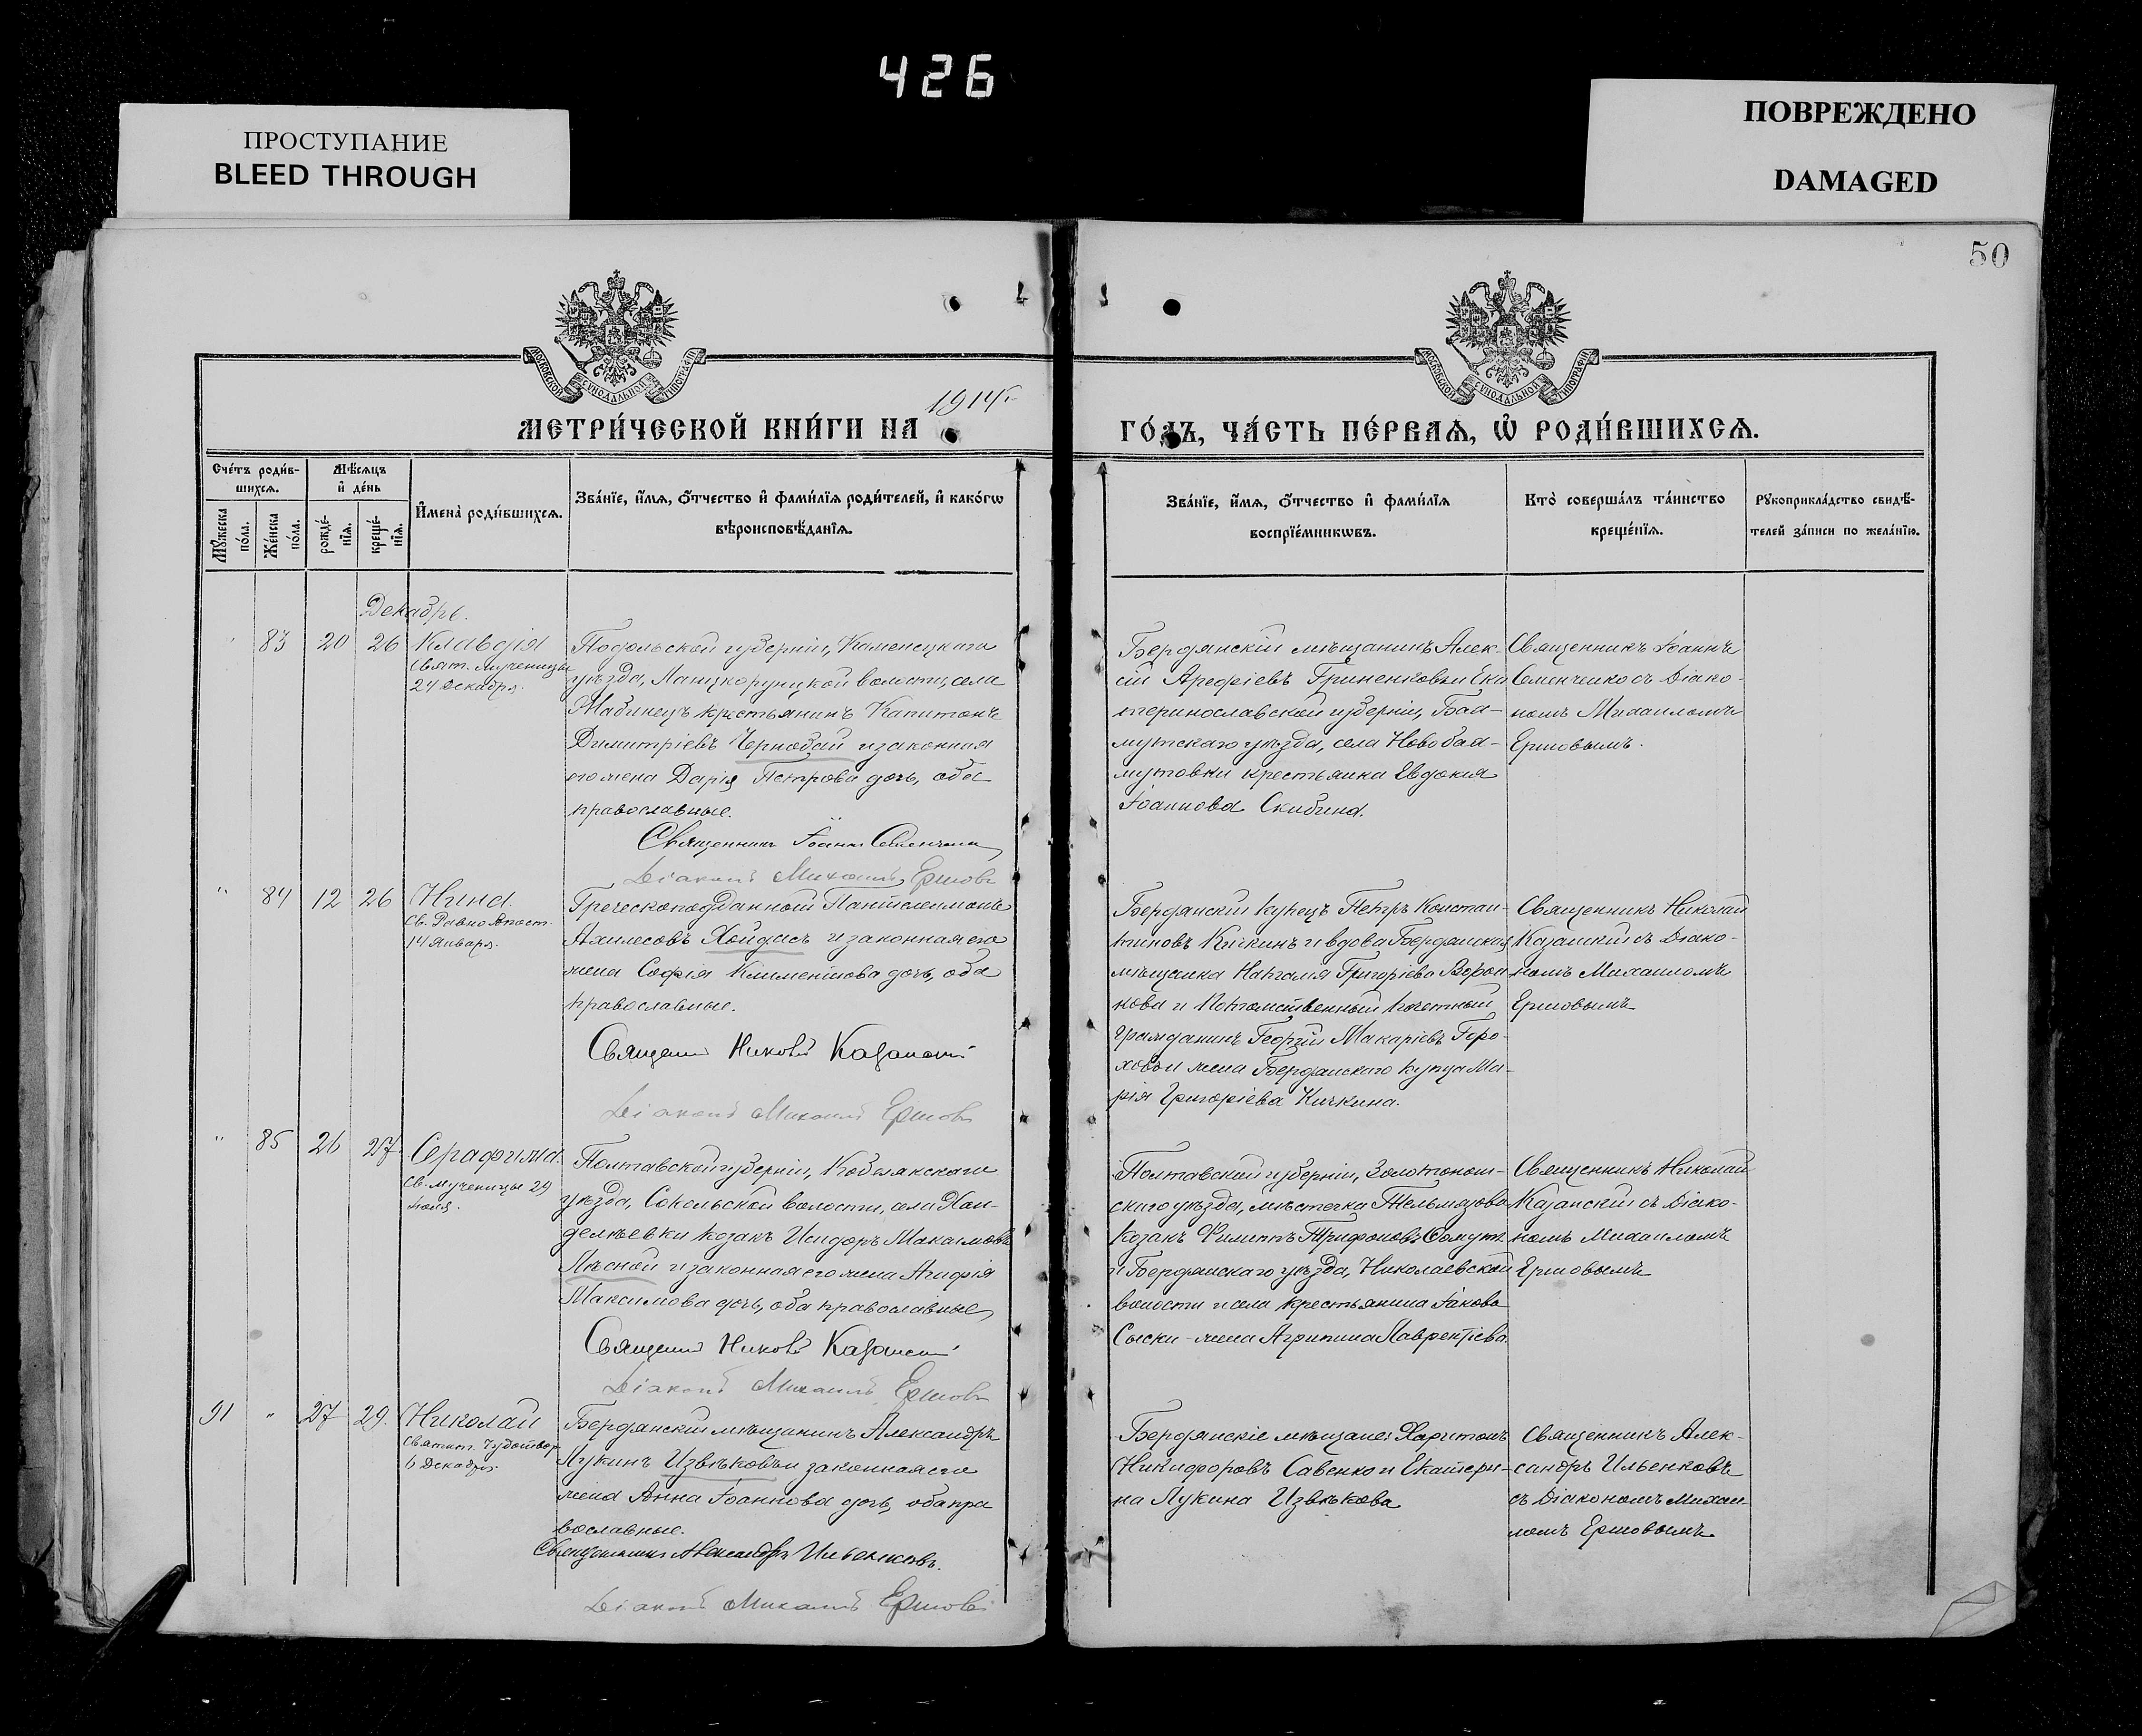 426
ПРОСТУПАНИЕ
BLEED THROUGH
ПОВРЕЖДЕНО
DAMAGED
50
МОСКОВСКОЙ СѴНОДАЛЬНОЙ ТИПОГРАФІИ
МОСКОВСКОЙ СѴНОДАЛЬНОЙ ТИПОГРАФІИ
1914 г.
МЕТРИ́ЧЕСКОЙ КНИ́ГИ НА
ГО́ДЪ, ЧА́СТЬ ПЕ́РВАѦ, Ѡ҆ РОДИ́ВШИХСѦ.
Сче́тъ роди́в-
шихсѧ.
Мѣ́сѧцъ
и҆ де́нь
Мꙋ́жеска
по́ла.
Же́нска
по́ла.
рожде́-
нїѧ.
креще́-
нїѧ.
И҆мена̀ роди́вшихсѧ.
Зва́нїе, и҆́мѧ, ѻ҆́тчество и҆ фами́лїѧ роди́телей, и҆ како́гѡ
вѣроисповѣ́данїѧ.
Зва́нїе, и҆́мѧ, ѻ҆́тчество и҆ фами́лїѧ
воспрїе́мникѡвъ.
Кто̀ соверша́лъ та́инство
креще́нїѧ.
Рꙋкоприкла́дство свидѣ́-
телей за́писи по жела́нїю.
Декабрь.
" 83 20 26 Клавдія
Свят. мученицы
24 декабря.
Подольской губерніи, Каменецкаго
уѣзда, Ланцкорунской волости, села
крестьянинъ Капитонъ
Димитріевъ Чернобай и законная
его жена Дарія Петрова дочь, оба
православные.
Священникъ Іоаннъ Семенченко
Діаконъ Михаилъ Ершовъ
Бердянскій мѣщанинъ Алек-
сій Арефіевъ Гриненковъ и Ека
теринославской губерніи, Бах-
мутскаго уѣзда, села Новобах-
мутовки крестьянка Евдокия
Іоаннова Скибина.
Священникъ Іоаннъ
Семенченко съ Діако-
номъ Михаиломъ
Ершовымъ.
" 84 12 26 Нина.
Св. Равноапост.
14 Января.
Греческоподданный Пантелеимонъ
Ахилесовъ Хойдасъ и законная его
жена Софія Климентова дочь, оба
православные.
Священникъ Николай Казанскій
Діаконъ Михаилъ Ершовъ
Бердянскій купецъ Петръ Констан-
тиновъ Кичкинъ и вдова Бердянская
мѣщанка Наталія Григоріева Ворон
кова и Потомственный почетный
Гражданинъ Георгій Макаріевъ Горо-
ховъ и жена Бердянскаго купца Ма-
рія Григоріева Кичкина.
Священникъ Николай
Казанскій съ Діако-
номъ Михаиломъ
Ершовымъ
" 85 26 27 Серафима.
Св. мученицы 29
Іюля.
Полтавской губерніи, Кобелякскаго
уѣзда, Сокольской волости, села Хан-
делѣевки козакъ Исидоръ Максимовъ
Лѣсной и законная его жена Агафія
Максимова дочь, оба православные
Священникъ Николай Казанскій
Діаконъ Михаилъ Ершовъ
Полтавской губерніи, Золотонош-
скаго уѣзда, мѣстечка
Козакъ Филиппъ Трифоновъ
и Бердянскаго уѣзда, Николаевской
волости и села крестьянина Іакова
Сыски - жена Агрипина Лаврентіева.
Священникъ Николай
Казанскій съ Діако-
номъ Михаиломъ
Ершовымъ
91 " 27 29. Николай
Святит. Чудотвор.
6 Декабря.
Бердянскій мѣщанинъ Александръ
Лукинъ Извѣковъ и законная его
жена Анна Іоаннова дочь, оба пра
вославные.
Священникъ Александръ Ильенковъ.
Діаконъ Михаилъ Ершовъ
Бердянскіе мѣщане: Харитонъ
Никифоровъ Савенко и Екатери-
на Лукина Извѣкова
Священникъ Алек-
сандръ Ильенковъ
съ Діакономъ Михаи
ломъ Ершовымъ.